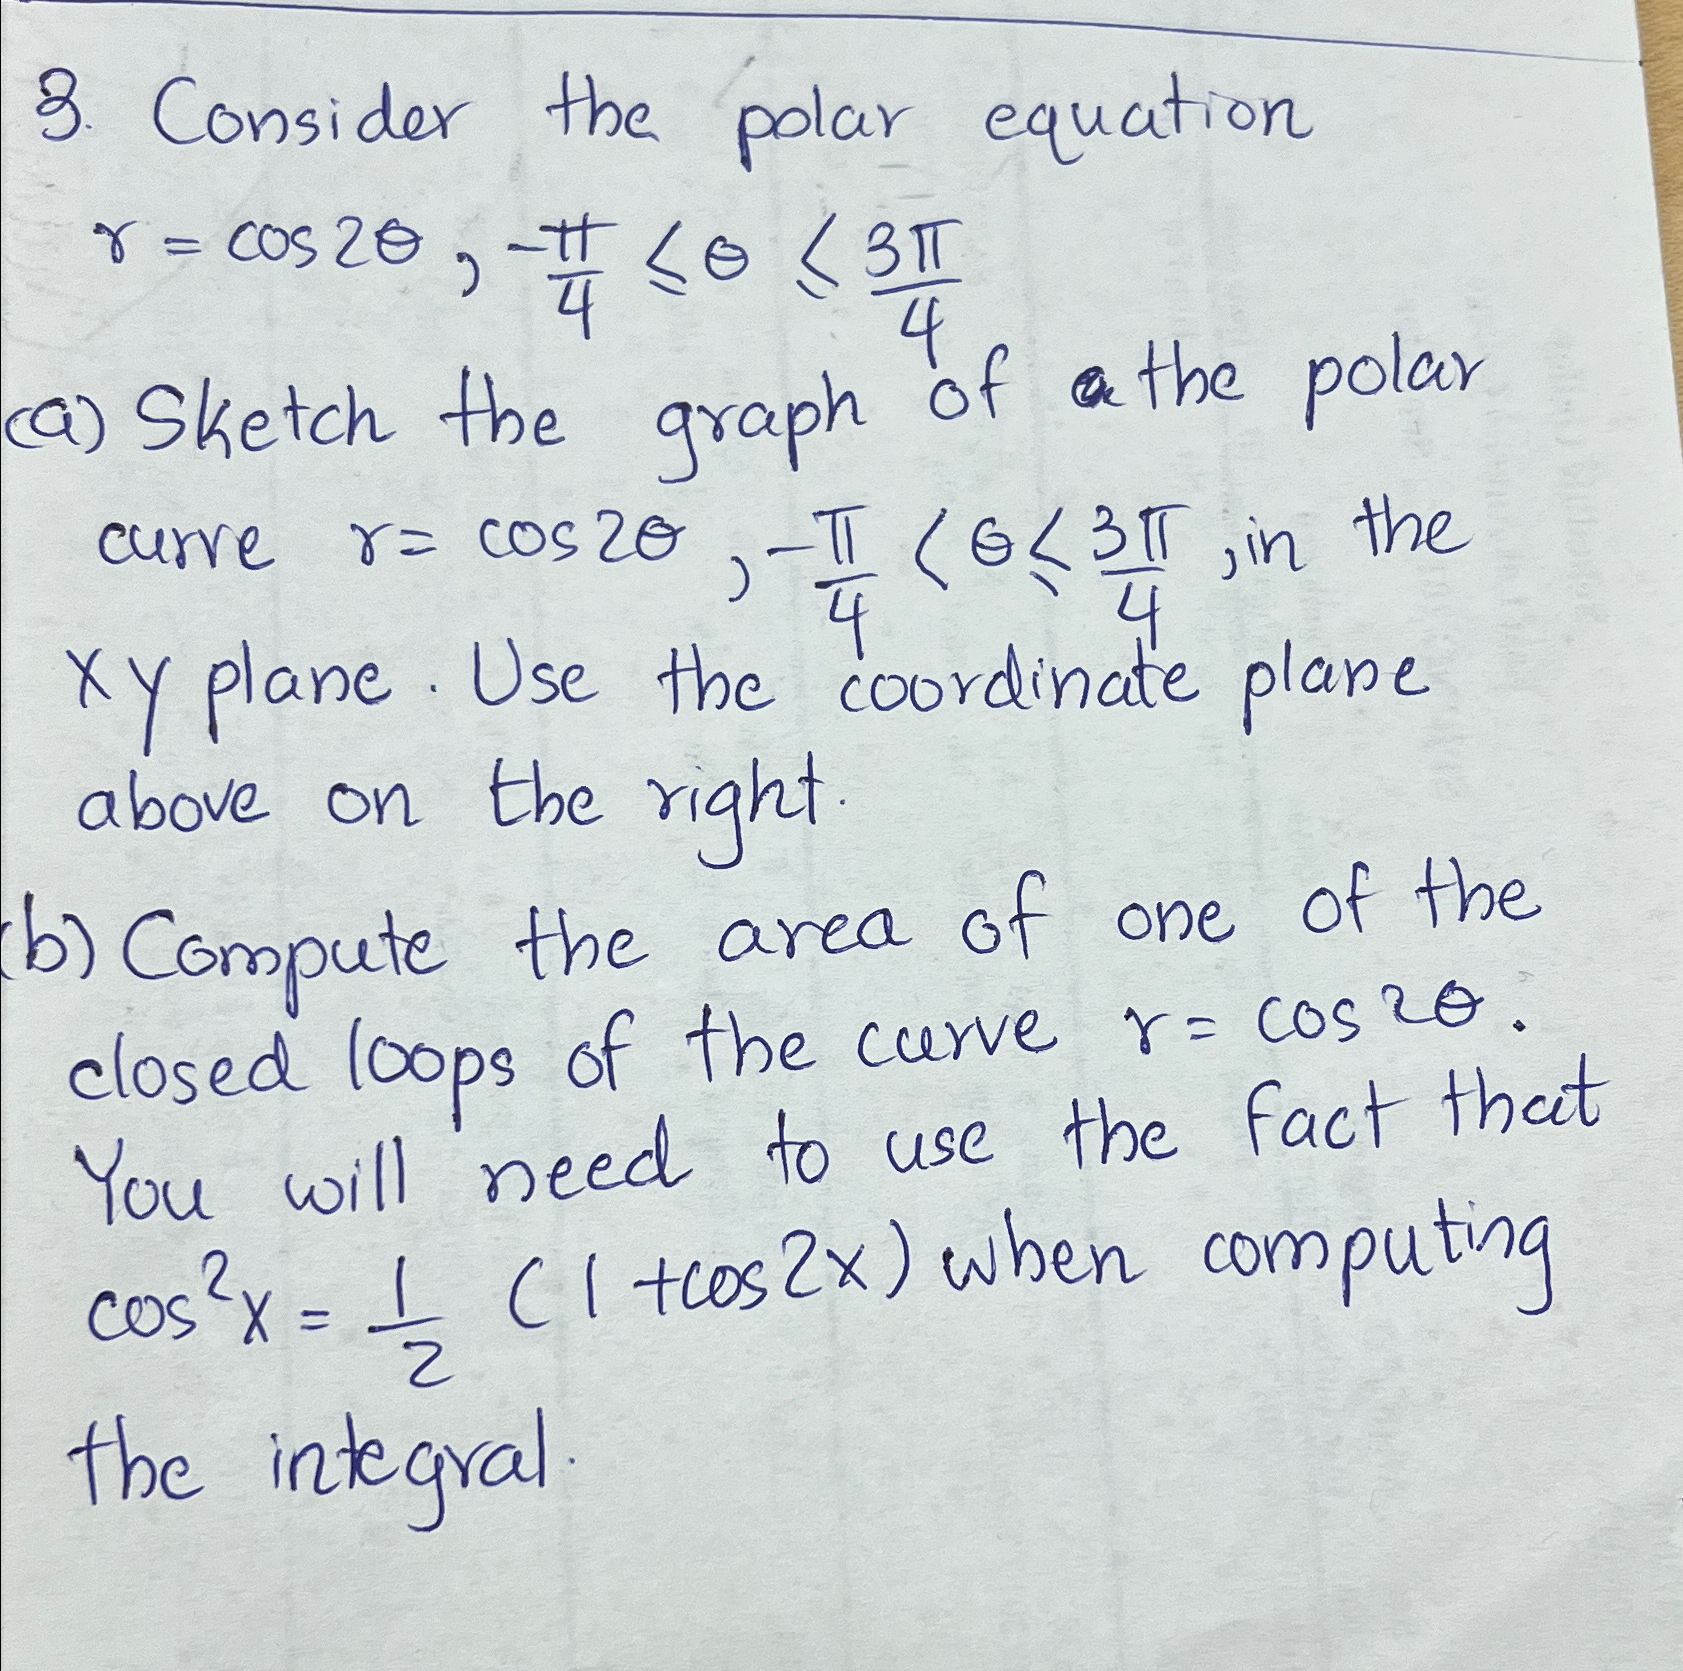 3. Consider the polar equation
r = cos2θ, -π/4 ≤ θ ≤ 3π/4
(a) Sketch the graph of the polar
curve r = cos2θ, -π/4 < θ ≤ 3π/4, in the
xy plane. Use the coordinate plane
above on the right.
(b) Compute the area of one of the
closed loops of the curve r = cos 2θ.
You will need to use the fact that
cos²x = 1/2 (1+cos2x) when computing
the integral.